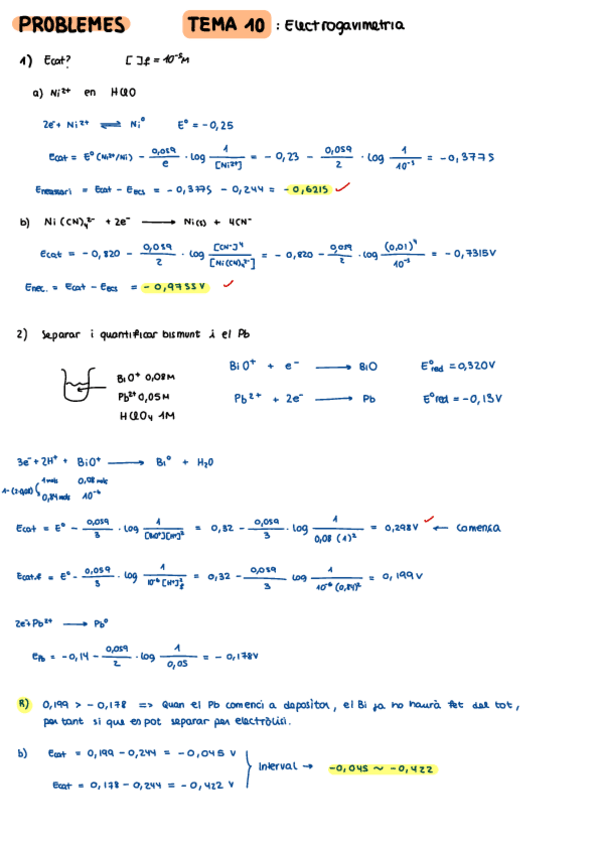 PROBLEMES TEMA 10 : Electrogravimetria
1) Ecat? [ ]f = 10⁻⁵M
a) Ni²⁺ en HClO
2e⁻ + Ni²⁺ ⇌ Ni⁰ E° = -0,25
Ecat = E°(Ni²⁺/Ni) - 0,059/e · log 1/[Ni²⁺] = -0,23 - 0,059/2 · log 1/10⁻⁵ = -0,3775
Enecessari = Ecat - EECS = -0,3775 - 0,244 = -0,6215 ✓
b) Ni(CN)₄²⁻ + 2e⁻ ⟶ Ni(s) + 4CN⁻
Ecat = -0,820 - 0,059/2 · log [CN⁻]⁴/[Ni(CN)₄²⁻] = -0,820 - 0,059/2 · log (0,01)⁴/10⁻⁵ = -0,7315V
Enec. = Ecat - EECS = -0,9755V ✓
2) Separar i quantificar bismunt i el Pb
BiO⁺ + e⁻ ⟶ BiO E°red = 0,320V
BiO⁺ 0,08M
Pb²⁺ 0,05M
HClO₄ 1M
Pb²⁺ + 2e⁻ ⟶ Pb E°red = -0,13V
3e⁻ + 2H⁺ + BiO⁺ ⟶ Bi⁰ + H₂O
1 mols 0,08 mols
1-(2·0,08) 0,84 mols 10⁻⁶
Ecat = E° - 0,059/3 · log 1/[BiO⁺][H⁺]² = 0,32 - 0,059/3 · log 1/0,08 (1)² = 0,298V ✓ ← comença
Ecat.f = E° - 0,059/3 · log 1/10⁻⁶[H⁺]²f = 0,32 - 0,059/3 log 1/10⁻⁶(0,84)² = 0,199V
2e⁻+Pb²⁺ ⟶ Pb⁰
EPb = -0,14 - 0,059/2 · log 1/0,05 = -0,178V
R) 0,199 > -0,178 => Quan el Pb comenci a depositar, el Bi ja ho haurà fet del tot,
per tant si que es pot separar per electròlisi.
b) Ecat = 0,199 - 0,244 = -0,045 V
Interval → -0,045 ~ -0,422
Ecat = 0,178 - 0,244 = -0,422 V